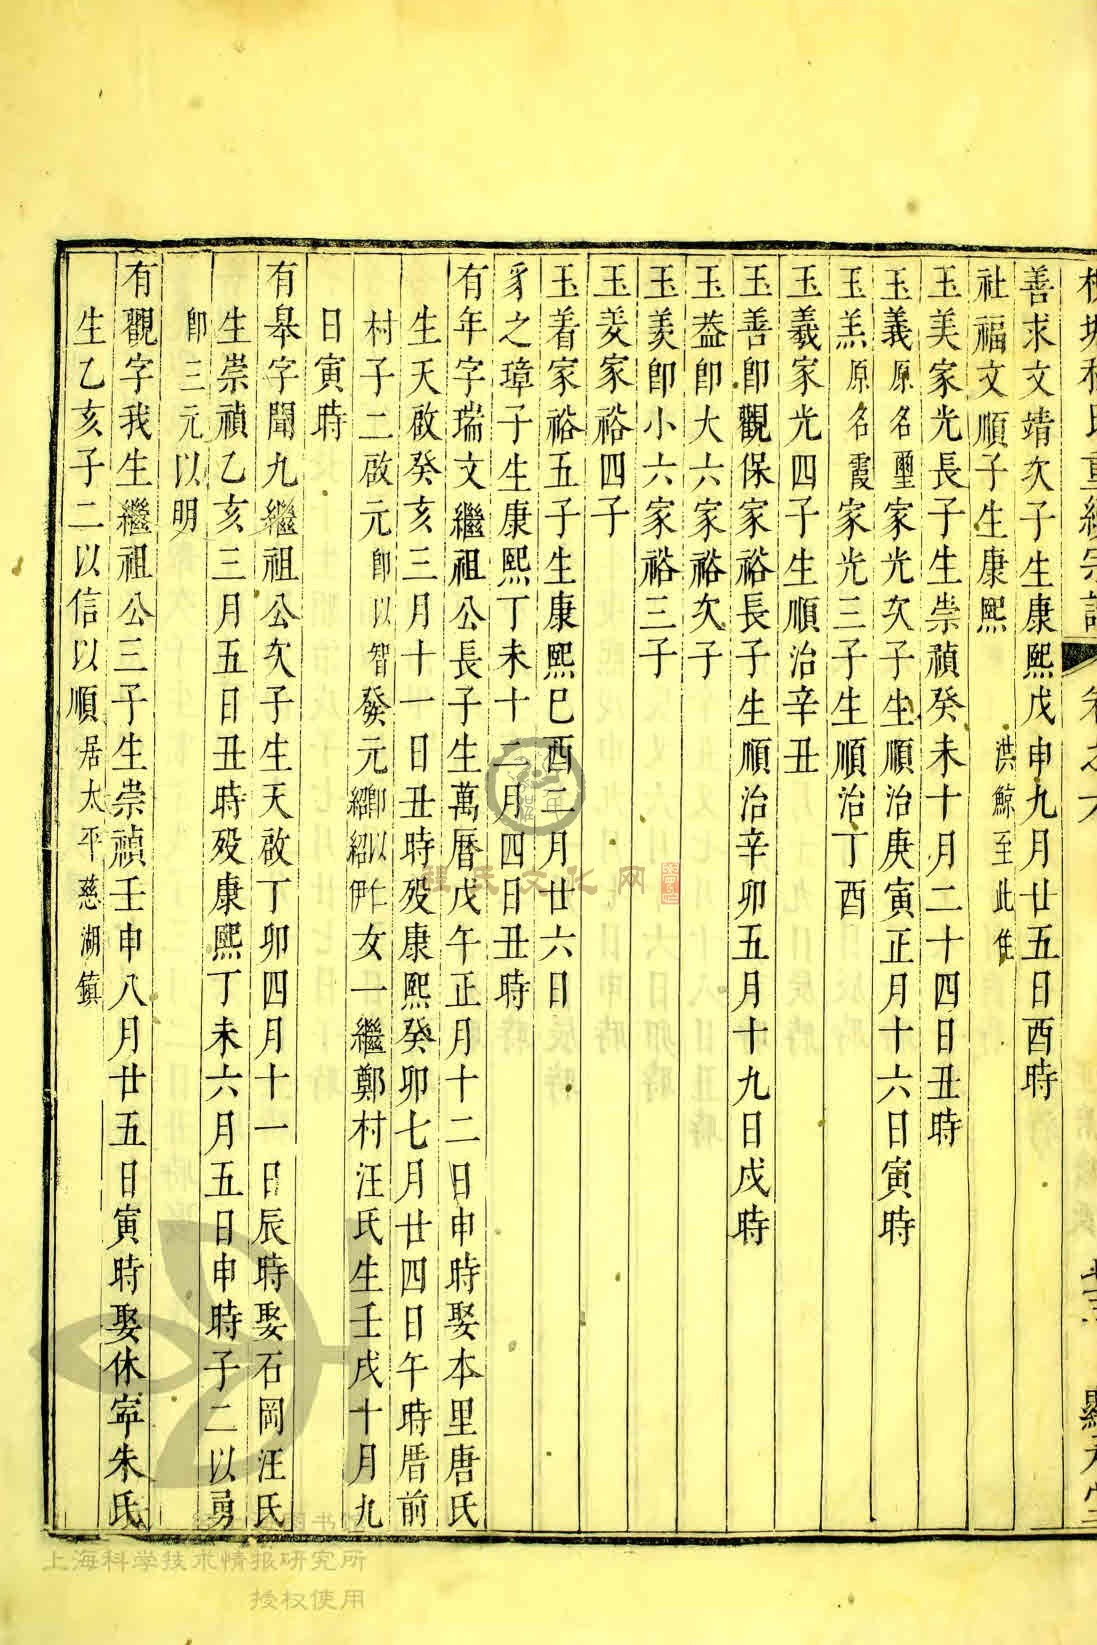 善求文靖次子生康熙戊申九月廿五日酉時
社福文順子生康熙 洪鯨至此住
玉美家光長子生崇禎癸未十月二十四日丑時
玉義原名璽家光次子生順治庚寅正月十六日寅時
玉羔原名霞家光三子生順治丁酉
玉羲家光四子生順治辛丑
玉善即觀保家裕長子生順治辛卯五月十九日戌時
玉益即大六家裕次子
玉羨即小六家裕三子
玉姜家裕四子
玉着家裕五子生康熙巳酉二月廿六日
豸之璋子生康熙丁未十二月四日丑時
有年字瑞文繼祖公長子生萬曆戊午正月十二日申時娶本里唐氏
生天啟癸亥三月十一日丑時歿康熙癸卯七月廿四日午時厝前
村子二啟元即以智發元即以仁紹紹伊女一繼鄭村汪氏生壬戌十月九
日寅時
有皋字聞九繼祖公次子生天啟丁卯四月十一日辰時娶石岡汪氏
生崇禎乙亥三月五日丑時歿康熙丁未六月五日申時子二以勇
即三元以明
有觀字我生繼祖公三子生崇禎壬申八月廿五日寅時娶休寧朱氏
生乙亥子二以信以順居太平慈湖鎮
程氏文化网
上海科学技术情报研究所
授权使用